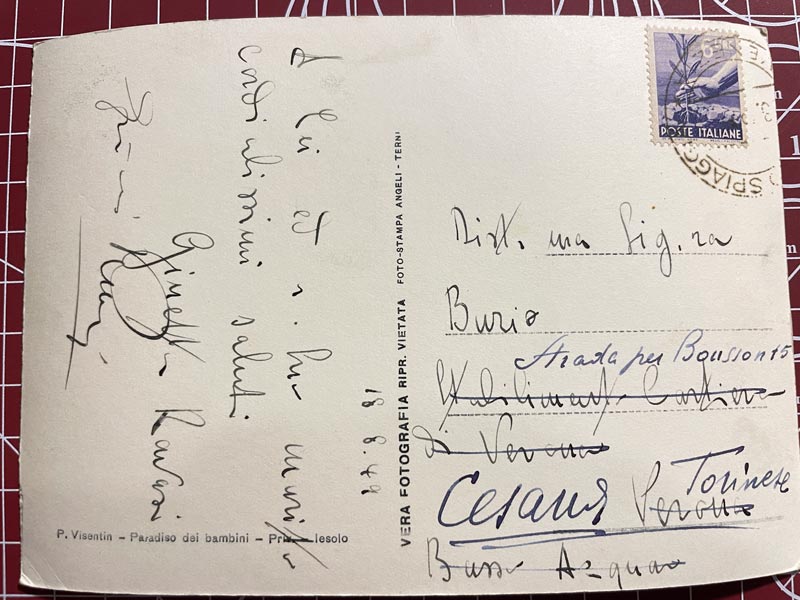 A Lei ed a Suo marito
cordialissimi saluti
Ginetta
18.8.49
P. Visentin - Paradiso dei bambini - Iesolo
VERA FOTOGRAFIA RIPR. VIETATA FOTO-STAMPA ANGELI - TERNI
POSTE ITALIANE
SPIAGG
Dist.ma Sig.ra
Burio
Strada per Bousson 15
Stabilimento Cartiere
di Verona
Cesana Torinese
Verona
Basso Acquar